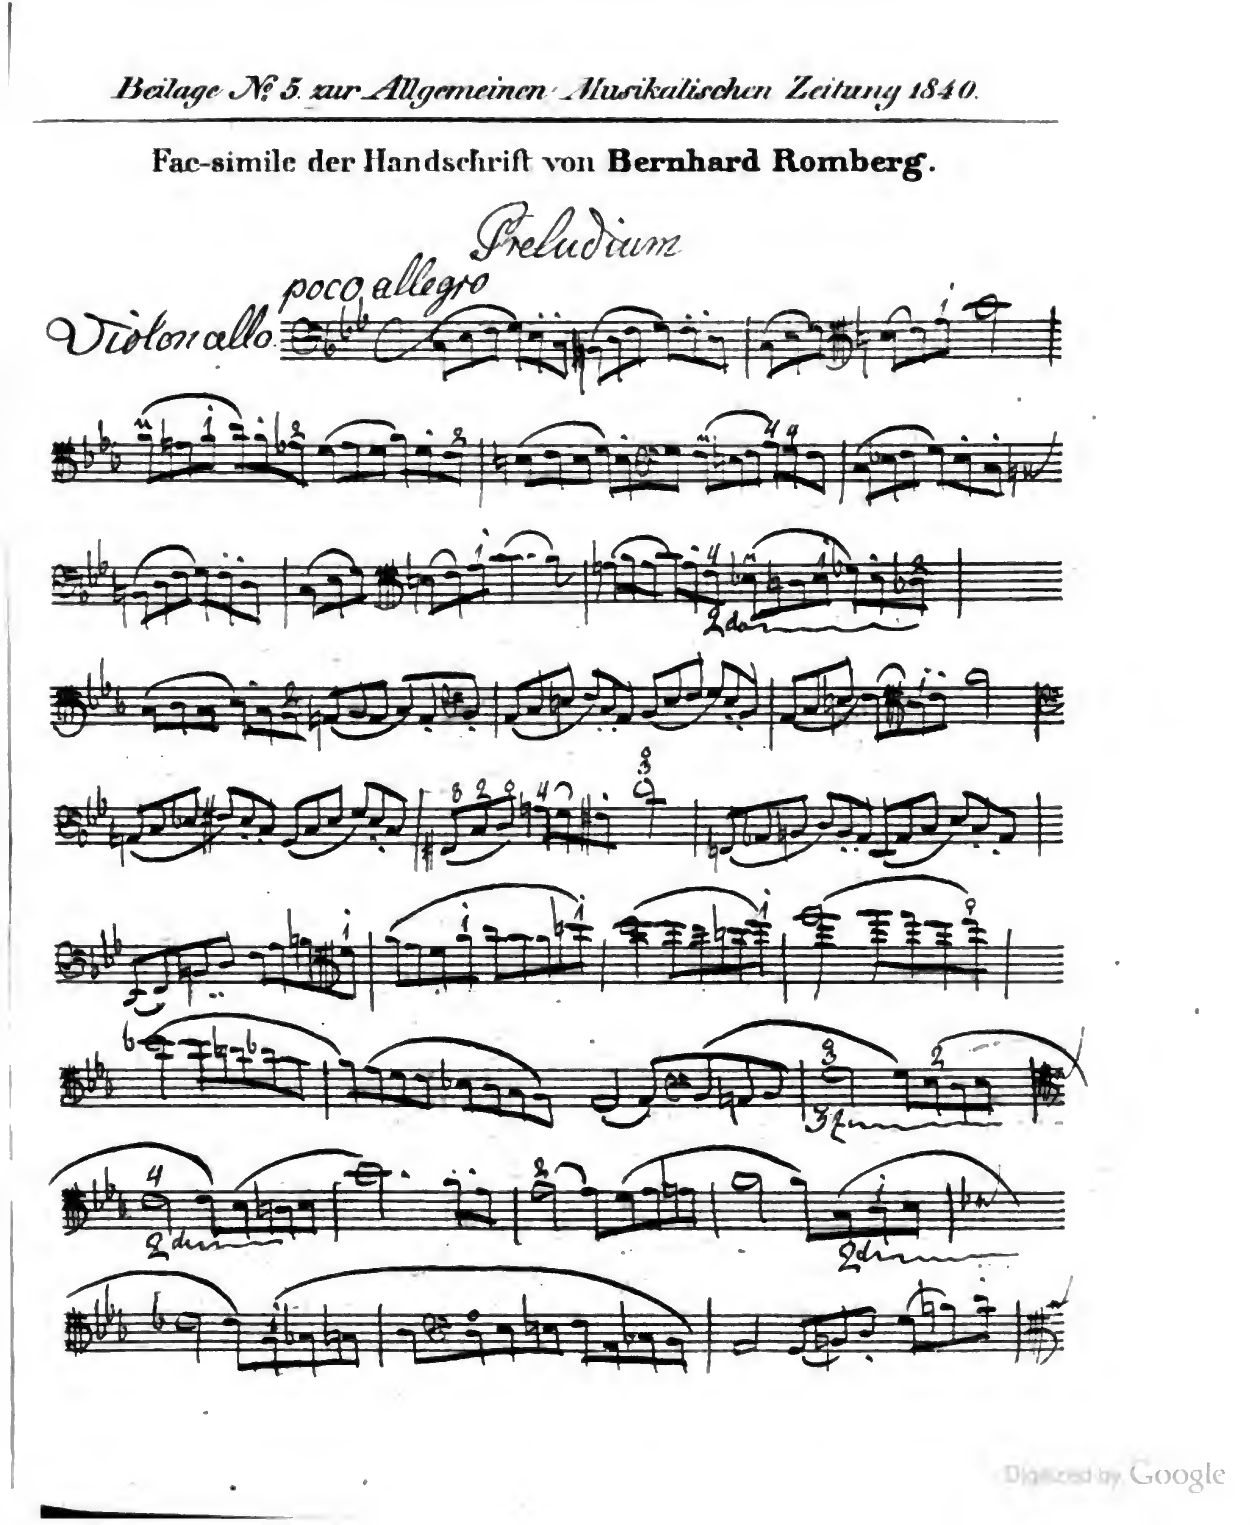 Beilage No. 5. zur Allgemeinen Musikalischen Zeitung 1840.
Fac-simile der Handschrift von Bernhard Romberg.
Preludium
poco allegro
Violoncello.
2da
2da
2da
Digitized by Google